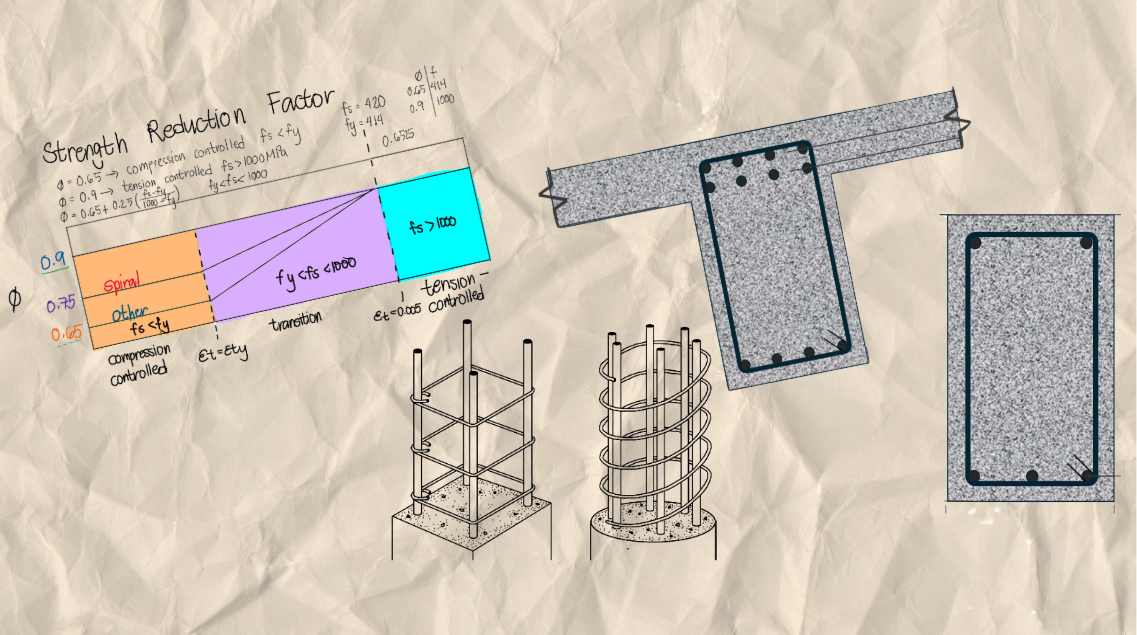 Strength Reduction Factor
φ = 0.65 → compression controlled fs < fy
φ = 0.9 → tension controlled fs > 1000 MPa
φ = 0.65 + 0.25 (fs-fy / 1000-fy) fy < fs < 1000
fs = 420
fy = 414
φ f
0.65 414
0.9 1000
0.6525
0.9
φ
0.75
0.65
spiral
other
fs < fy
fy < fs < 1000
fs > 1000
compression
controlled
εt = εty
transition
εt = 0.005
tension -
controlled